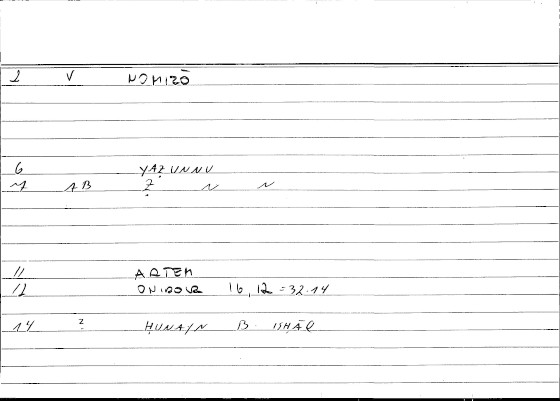 2 V NOMIZŌ
6 YAẒUNNU
7 AB Ẓ N N
11 ARTEM
12 ONIDOUR 16,12 = 32.14
14 ? ḤUNAYN B. ISHĀQ